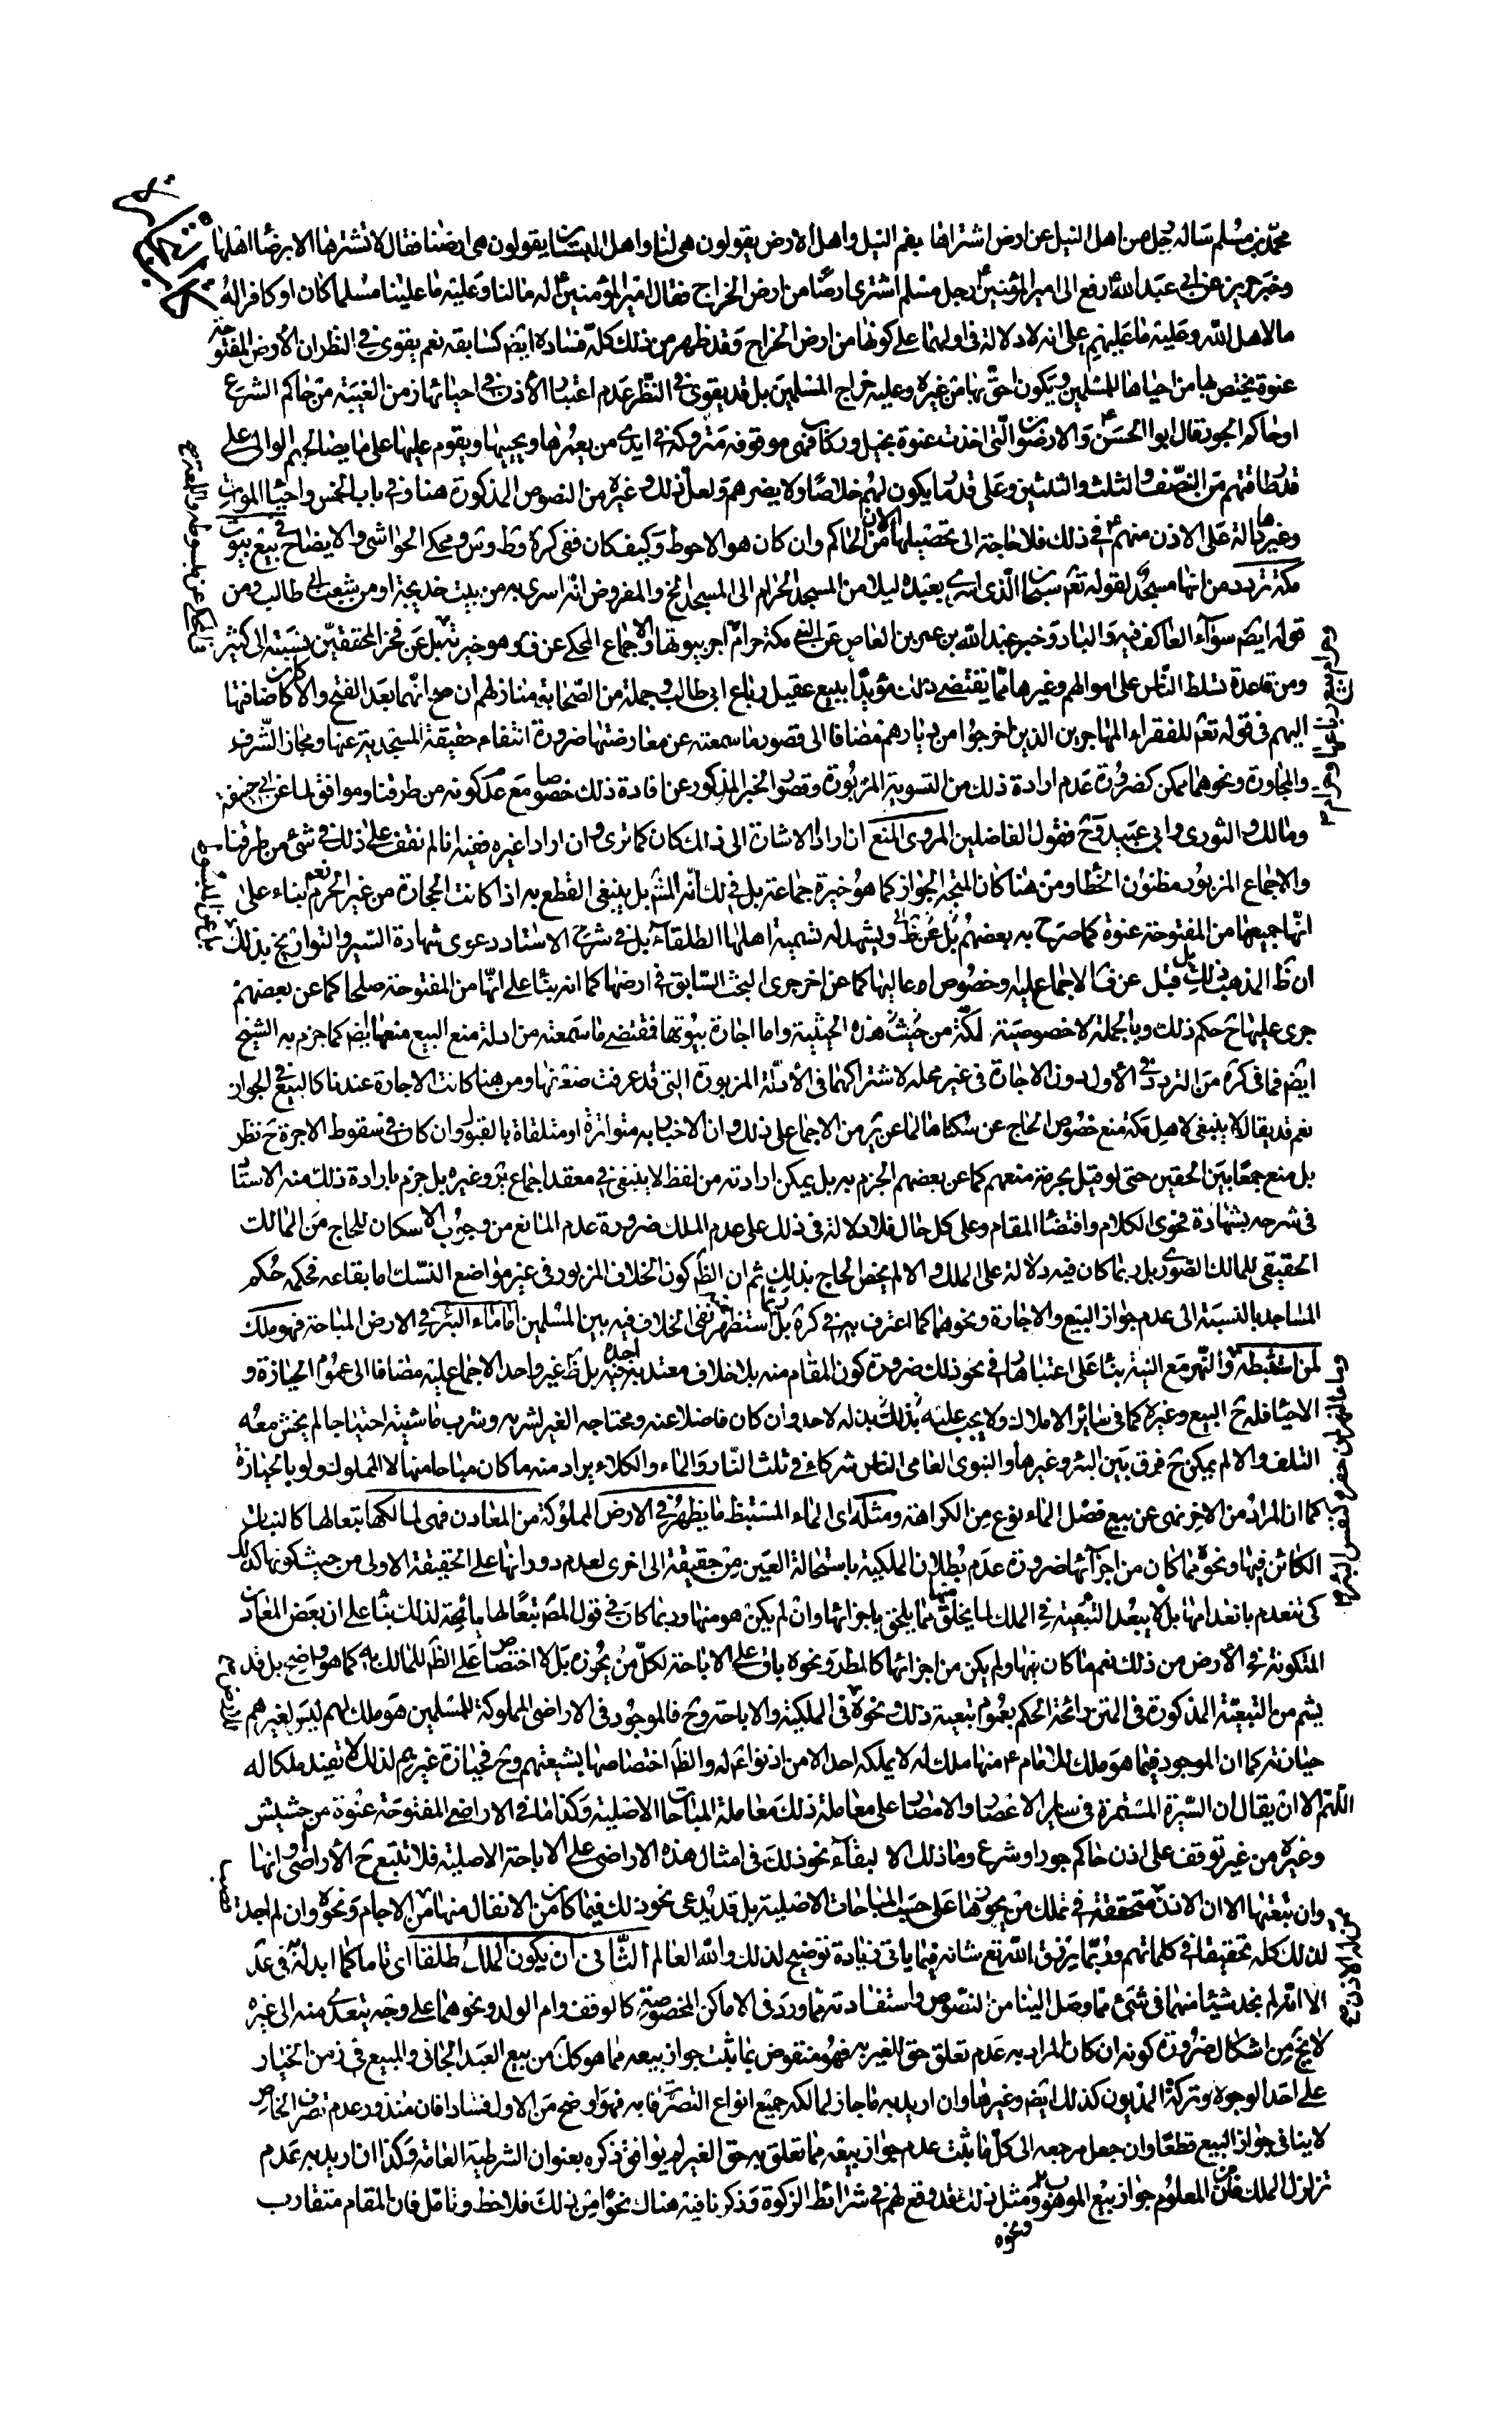 محمد بن مسلم سأله رجل من اهل النيل عن ارض اشتراها بفم النيل واهل الارض يقولون هي لنا واهل الاستان يقولون هي ارضنا فقال لا تشترها الا برضا اهلها
وخبر حريز عن ابي عبد الله ع رفع الى امير المؤمنين ع رجل مسلم اشترى ارضا من ارض الخراج فقال امير المؤمنين ع له مالنا وعليه ما علينا مسلما كان او كافرا له
ما لاهل الله وعليه ما عليهم على انه لا دلالة في اولهما على كونها من ارض الخراج وقد ظهر من ذلك كله فساده ايضم كسابقه نعم يقوى في النظر ان الارض المفتوحة
عنوة يختص بها من احياها للمسلمين ويكون احق بها من غيره وعليه خراج المسلمين بل قد يقوى في النظر عدم اعتبار الاذن في احيائها زمن الغيبة من حاكم الشرع
او حاكم الجور قال ابو الحسن ع والارضون التي اخذت عنوة بخيل وركاب فهي موقوفه متروكة في ايدي من يعمرها ويحييها ويقوم عليها على ما يصالحهم الوالي على
قدر طاقتهم من النصف والثلث والثلثين وعلى قدر ما يكون لهم صلاحا ولا يضرهم ولعل ذلك وغيره من النصوص المذكورة هنا وفي باب الخمس واحياء الموات
وغيرها دالة على الاذن منهم ع في ذلك فلا حاجة الى تحصيلها الان من الحاكم وان كان هو الاحوط وكيف كان ففي كرة وط وس ومحكي الحواشي والايضاح في بيع بيوت
مكة تردد من انها مسجد لقوله تعم سبحان الذي اسرى بعبده ليلا من المسجد الحرام الى المسجد الخ والمفروض انه اسرى به من بيت خديجة او من شعب ابي طالب ومن
قوله ايضم سواء العاكف فيه والباد وخبر عبد الله بن عمرو بن العاص عن النبي مكة حرام اجر بيوتها والاجماع المحكي عن ف وهو خيرته بل عن فخر المحققين نسبته الى كثير
ومن قاعدة تسلط الناس على اموالهم وغيرها مما يقتضي ذلك مؤيدا ببيع عقيل رباع ابي طالب وجملة من الصحابة منازلهم ان صح انهما بعد الفتح والا كان كاضافتها
اليهم في قوله تعم للفقراء المهاجرين الذين اخرجوا من ديارهم مضافا الى قصور ما سمعته عن معارضتها ضرورة انتفاء حقيقة المسجدية عنها ومجاز الشرف
والمجاورة ونحوهما ممكن كضرورة عدم ارادة ذلك من التسوية المزبورة وقصور الخبر المذكور عن افادة ذلك خصوصا مع عدم كونه من طرقنا وموافق لما عن ابي حنيفة
ومالك والثوري وابي عبيد وح فقول الفاضلين المروي المنع ان ارادا الاشارة الى ذلك كان كما ترى وان ارادا غيره ففيه انا لم نقف على ذلك في شئ من طرقنا
والاجماع المزبور مظنون الخطا ومن هنا كان المتجه الجواز كما هو خيرة جماعة بل في لك انه المشهور بل ينبغي القطع به اذا كانت الحجارة من غير الحرم نعم بناء على
انها جميعها من المفتوحة عنوة كما صرح به بعضهم بل عن ط ويشهد له تسمية اهلها الطلقاء بل في شرح الاستاد دعوى شهادة السير والتواريخ بذلك
ان ظ المذهب ذلك بل قبل عن ف الاجماع عليه وخصوص اوعاليها كما عن اخر جرى البحث السابق في ارضها كما انه بناء على انها من المفتوحة صلحا كما عن بعضهم
جرى عليها ح حكم ذلك وبالجملة لا خصوصية لمكة من حيث هذه الحيثية واما اجارة بيوتها فمقتضى ما سمعته من ادلة منع البيع منعها ايضم كما جزم به الشيخ
ايضم فما في كرة من التردد في الاول دون الاجارة في غير محله لاشتراكهما في الادلة المزبورة التي قد عرفت ضعفها ومن هنا كانت الاجارة عندنا كالبيع في الجواز
نعم قد يقال لا ينبغي لاهل مكة منع خصوص الحاج عن سكناها لما عن ير من الاجماع على ذلك وان الاخبار به متواترة او متلقاة بالقبول وان كان في سقوط الاجرة ح نظر
بل منع جمعا بين الحقين حتى لو قيل بحرمة منعهم كما عن بعضهم الجزم به بل يمكن ارادته من لفظ لا ينبغي في معقد اجماع ير وغيره بل جزم بارادة ذلك منه الاستاد
في شرحه بشهادة فحوى الكلام واقتضاء المقام وعلى كل حال فلا دلالة في ذلك على عدم الملك ضرورة عدم المنافع من وجوب الاسكان للحاج من المالك
الحقيقي للمالك الصوري بل ربما كان فيه دلالة على الملك والا لم يخص الحاج بذلك ثم ان الظ كون الخلاف المزبور في غير مواضع النسك اما بقاعه فحكمه حكم
المساجد بالنسبة الى عدم جواز البيع والاجارة ونحوهما كما اعترف به في كرة بل ربما استظهر نفي الخلاف فيه بين المسلمين اما ماء البئر في الارض المباحة فهو ملك
لمن استنبطه والنهر مع النية بناء على اعتبارها في نحو ذلك ضرورة كون المقام منه بلا خلاف معتد به اجده فيه بل ظ غير واحد الاجماع عليه مضافا الى عموم الحيازة و
الاحياء فله ح البيع وغيره كما في سائر الاملاك ولا يجب عليه بذله لاحد وان كان فاضلا عنه ومحتاجه الغير لشربه وشرب ماشيته احتياجا لم يخش معه
التلف والا لم يكن ح فرق بين البئر وغيرها والنبوي العامي الناس شركاء في ثلث النار والماء والكلاء يراد منه ما كان مباحا منها لا المملوك ولو بالحيازة
كما ان المراد من الاخر نهى عن بيع فضل الماء نوع من الكراهة ومثله اي الماء المستنبط ما يظهر في الارض المملوكة من المعادن فهي لمالكها تبعا لها كالنبات
الكائن فيها ونحوه مما كان من اجزائها ضرورة عدم بطلان الملكية باستحالة العين من حقيقة الى اخرى لعدم دورانها على الحقيقة الاولى من حيث كونها كذلك
كي تنعدم بانعدامها بل لا يبعد التبعية في الملك لما يخلق فيها مما يلحق باجزائها وان لم يكن هو منها وربما كان في قول المص تبعا لها رائحة لذلك بناء على ان بعض المعادن
المتكونة في الارض من ذلك نعم ما كان فيها ولم يكن من اجزائها كالمطر ونحوه باق على الاباحة لكل من يحوزه بلا اختصاص على الظ للمالك به كما هو واضح بل قد
يشم من التبعية المذكورة في المتن رائحة الحكم بعموم تبعية ذلك ونحوه في الملكية والاباحة وح فالموجود في الاراضي المملوكة للمسلمين هو ملك لهم ليس لغيرهم
حيازته كما ان الموجود فيما هو ملك للامام ع منها ملك له لا يملكه احد الا من اذنوا ع له والظ اختصاصها بشيعتهم وح فحيازة غيرهم لذلك لا تفيد ملكا له
اللهم الا ان يقال ان السيرة المستمرة في سائر الاعصار والامصار على معاملة ذلك معاملة المباحات الاصلية وكذا ما في الاراضي المفتوحة عنوة من حشيش
وغيره من غير توقف على اذن حاكم جور او شرع وما ذلك الا لبقاء نحو ذلك في امثال هذه الاراضي على الاباحة الاصلية فلا تتبع ح الاراضي او انها
وان تبعتها الا ان الاذن متحققة في تملك من يحوزها على حسب المباحات الاصلية بل قد يدعى نحو ذلك فيما كان من الانفال منها من الاجام ونحوه وان لم اجد
لذلك كله تحقيقا في كلماتهم وربما يرزق الله تع شانه فيما ياتي زيادة توضيح لذلك والله العالم الثاني ان يكون الملك طلقا اي تاما كما ابدله في عد
الا انا لم نجد شيئا منهما في شئ مما وصل الينا من النصوص واستفادته مما ورد في الاماكن المخصوصة كالوقف وام الولد ونحوهما على وجه يتعدى منه الى غيره
لا يخ من اشكال ضرورة كونه ان كان المراد به عدم تعلق حق الغير به فهو منقوض بما ثبت جواز بيعه مما هو كك من بيع العبد الجاني والمبيع في زمن الخيار
على احد الوجوه وتركة المديون كذلك ايضم وغيرها وان اريد به ما جاز لمالكه جميع انواع التصرفات به فهو اوضح من الاول فسادا فان منذور عدم تصرف الخاص
لا ينافي جواز البيع قطعا وان جعل مرجعه الى كل ما يثبت عدم جواز بيعه مما تعلق به حق الغير لم يوافق ذكره بعنوان الشرطية العامة وكذا ان اريد به عدم
تزلزل الملك فان من المعلوم جواز بيع الموهوب ومثل ذلك قد وقع لهم في شرائط الزكوة وذكرنا فيه هناك نحوا من ذلك فلاحظ وتامل فان المقام متقارب
ونحوه